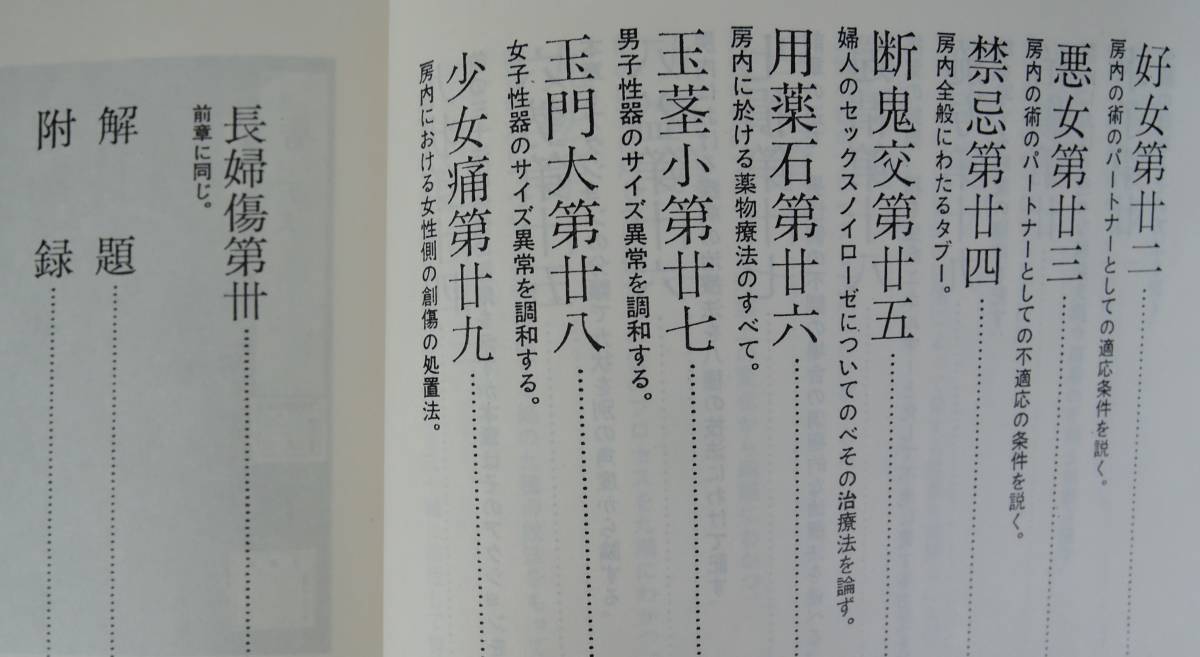 好女第廿二
房内の術のパートナーとしての適応条件を説く。
悪女第廿三
房内の術のパートナーとしての不適応の条件を説く。
禁忌第廿四
房内全般にわたるタブー。
断鬼交第廿五
婦人のセックスノイローゼについてのべその治療法を論ず。
用薬石第廿六
房内に於ける薬物療法のすべて。
玉茎小第廿七
男子性器のサイズ異常を調和する。
玉門大第廿八
女子性器のサイズ異常を調和する。
少女痛第廿九
房内における女性側の創傷の処置法。
長婦傷第卅
前章に同じ。
解題
附録